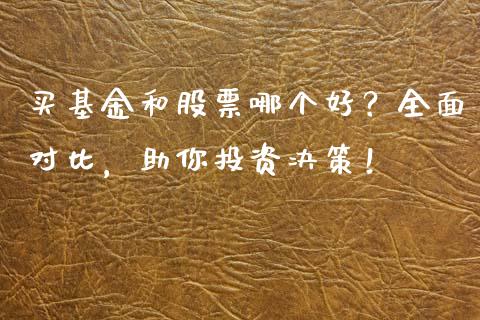 买基金和股票哪个好？全面
对比，助你投资决策！